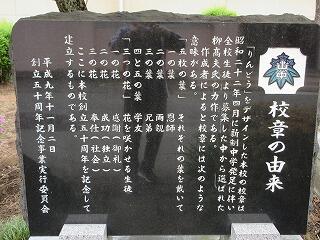 校章の由来
「りんどう」をデザインした本校の校章は
昭和二十二年四月に新制中学発足に伴い
全校生徒より募集した中から選ばれた
柳 高夫氏の力作である。
作成者によると校章には次のような
意味がある。
「五枚の葉」それぞれの葉を戴いて
一の葉 恩師
二の葉 両親
三の葉 兄弟
四と五の葉 学友
「三つの花」花を咲かせる生徒
一の花 感謝(御礼)
二の花 成功(独立)
三の花 奉仕(社会)
ここに本校創立五十周年を記念して
建立するものである。
平成九年十一月二日
創立五十周年記念事業実行委員会